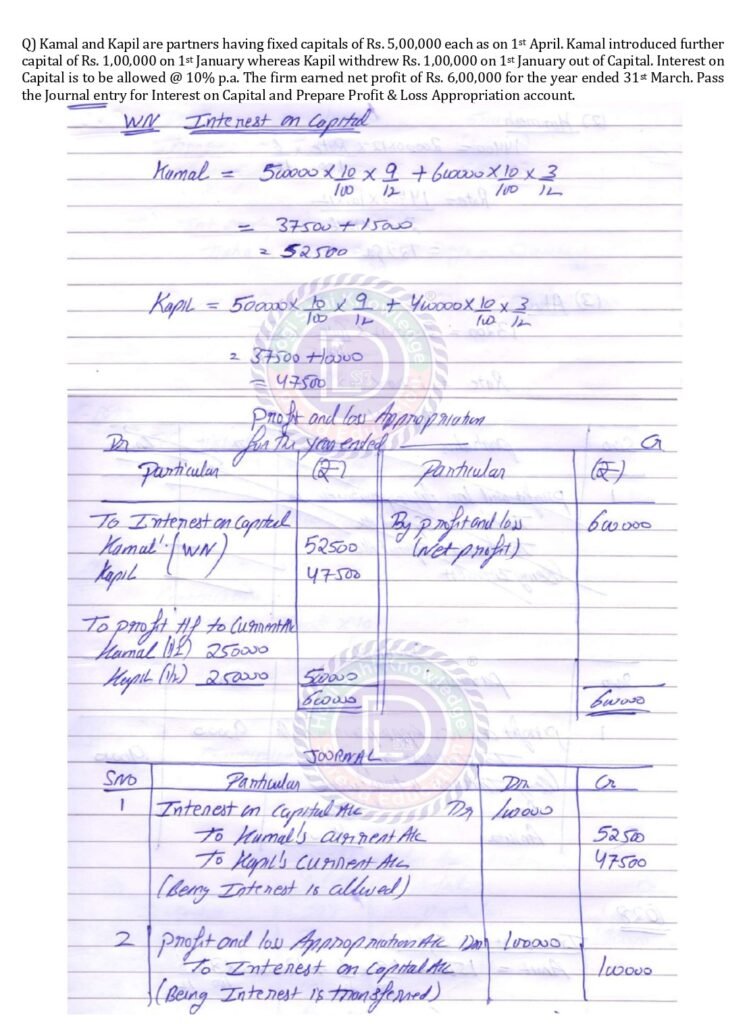 Q) Kamal and Kapil are partners having fixed capitals of Rs. 5,00,000 each as on 1st April. Kamal introduced further
capital of Rs. 1,00,000 on 1st January whereas Kapil withdrew Rs. 1,00,000 on 1st January out of Capital. Interest on
Capital is to be allowed @ 10% p.a. The firm earned net profit of Rs. 6,00,000 for the year ended 31st March. Pass
the Journal entry for Interest on Capital and Prepare Profit & Loss Appropriation account.
WN Interest on Capital
Kamal = 500000 x 10/100 x 9/12 + 600000 x 10/100 x 3/12
= 37500 + 15000
= 52500
Kapil = 500000 x 10/100 x 9/12 + 400000 x 10/100 x 3/12
= 37500 + 10000
= 47500
Profit and loss Appropriation
Dr for the year ended Cr
Particular (₹) Particular (₹)
To Interest on Capital By profit and loss 600000
Kamal (WN) 52500 (Net profit)
Kapil 47500
To profit t/f to Current A/c
Kamal (1/2) 250000
Kapil (1/2) 250000 500000
600000 600000
JOURNAL
SNO Particular Dr Cr
1 Interest on capital A/c Dr 100000
To Kamal's current A/c 52500
To Kapil's current A/c 47500
(Being Interest is allowed)
2 profit and loss Appropriation A/c Dr 100000
To Interest on Capital A/c 100000
(Being Interest is transferred)